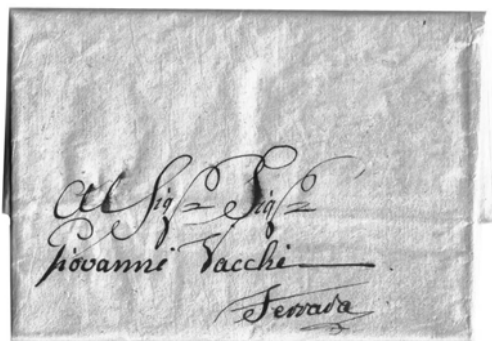 Al Sigr Sigr
Giovanni Vacchi
Ferrara